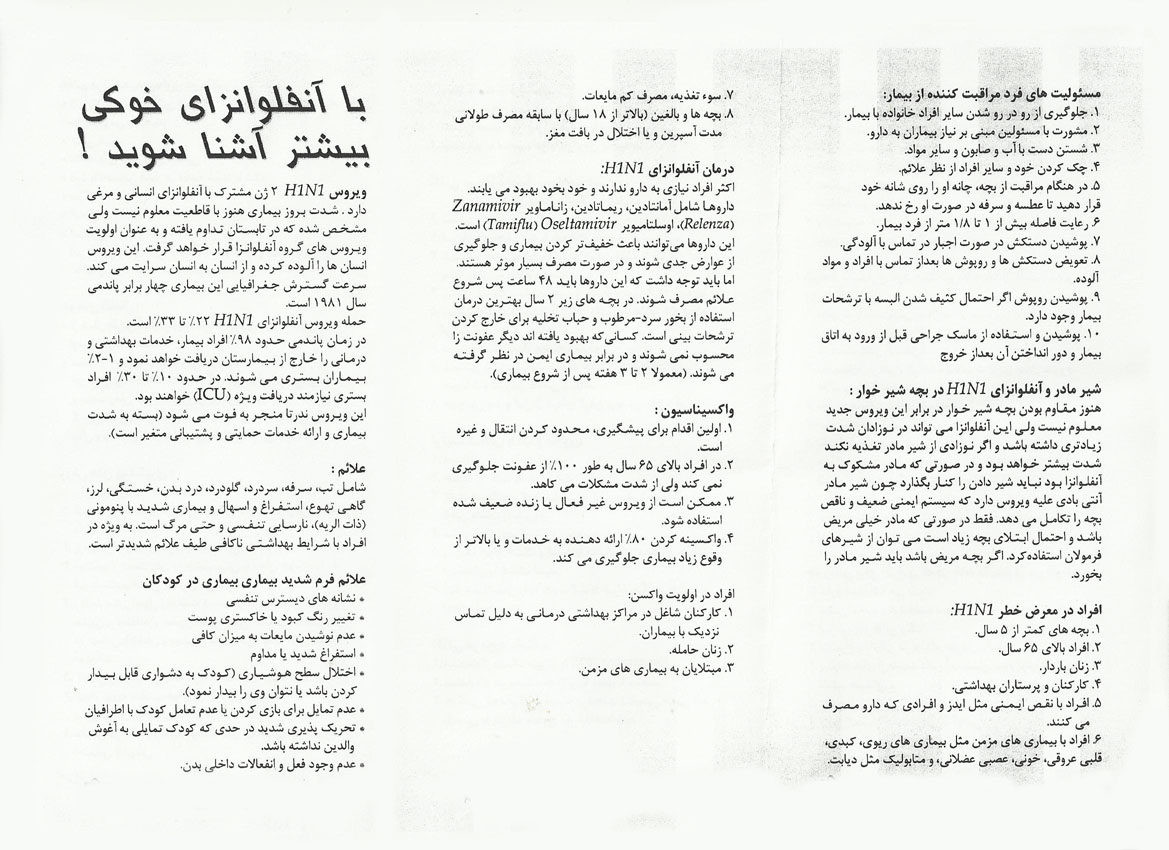 مسئولیت های فرد مراقبت کننده از بیمار:
۱. جلوگیری از رو در رو شدن سایر افراد خانواده با بیمار.
۲. مشورت با مسئولین مبنی بر نیاز بیماران به دارو.
۳. شستن دست با آب و صابون و سایر مواد.
۴. چک کردن خود و سایر افراد از نظر علائم.
۵. در هنگام مراقبت از بچه، چانه او را روی شانه خود
قرار دهید تا عطسه و سرفه در صورت او رخ ندهد.
۶. رعایت فاصله بیش از ۱ تا ۱/۸ متر از فرد بیمار.
۷. پوشیدن دستکش در صورت اجبار در تماس با آلودگی.
۸. تعویض دستکش ها و روپوش ها بعداز تماس با افراد و مواد
آلوده.
۹. پوشیدن روپوش اگر احتمال کثیف شدن البسه با ترشحات
بیمار وجود دارد.
۱۰. پوشیدن و استفاده از ماسک جراحی قبل از ورود به اتاق
بیمار و دور انداختن آن بعداز خروج
شیر مادر و آنفلوانزای H1N1 در بچه شیر خوار :
هنوز مقاوم بودن بچه شیر خوار در برابر این ویروس جدید
معلوم نیست ولی این آنفلوانزا می تواند در نوزادان شدت
زیادتری داشته باشد و اگر نوزادی از شیر مادر تغذیه نکند
شدت بیشتر خواهد بود و در صورتی که مادر مشکوک به
آنفلوانزا بود نباید شیر دادن را کنار بگذارد چون شیر مادر
آنتی بادی علیه ویروس دارد که سیستم ایمنی ضعیف و ناقص
بچه را تکامل می دهد. فقط در صورتی که مادر خیلی مریض
باشد و احتمال ابتلای بچه زیاد است می توان از شیرهای
فرمولان استفاده کرد. اگر بچه مریض باشد باید شیر مادر را
بخورد.
افراد در معرض خطر H1N1:
۱. بچه های کمتر از ۵ سال.
۲. افراد بالای ۶۵ سال.
۳. زنان باردار.
۴. کارکنان و پرستاران بهداشتی.
۵. افراد با نقص ایمنی مثل ایدز و افرادی که دارو مصرف
می کنند.
۶. افراد با بیماری های مزمن مثل بیماری های ریوی، کبدی،
قلبی عروقی، خونی، عصبی عضلانی، و متابولیک مثل دیابت.
۷. سوء تغذیه، مصرف کم مایعات.
۸. بچه ها و بالغین (بالاتر از ۱۸ سال) با سابقه مصرف طولانی
مدت آسپرین و یا اختلال در بافت مغز.
درمان آنفلوانزای H1N1:
اکثر افراد نیازی به دارو ندارند و خود بخود بهبود می یابند.
داروها شامل آمانتادین، ریماتادین، زاناماویر Zanamivir
(Relenza)، اوسلتامیویر Oseltamivir (Tamiflu) است.
این داروها می‌توانند باعث خفیف‌تر کردن بیماری و جلوگیری
از عوارض جدی شوند و در صورت مصرف بسیار موثر هستند.
اما باید توجه داشت که این داروها باید ۴۸ ساعت پس شروع
علائم مصرف شوند. در بچه های زیر ۲ سال بهترین درمان
استفاده از بخور سرد-مرطوب و حباب تخلیه برای خارج کردن
ترشحات بینی است. کسانی‌که بهبود یافته اند دیگر عفونت زا
محسوب نمی شوند و در برابر بیماری ایمن در نظر گرفته
می شوند. (معمولا ۲ تا ۳ هفته پس از شروع بیماری).
واکسیناسیون :
۱. اولین اقدام برای پیشگیری، محدود کردن انتقال و غیره
است.
۲. در افراد بالای ۶۵ سال به طور ۱۰۰٪ از عفونت جلوگیری
نمی کند ولی از شدت مشکلات می کاهد.
۳. ممکن است از ویروس غیر فعال یا زنده ضعیف شده
استفاده شود.
۴. واکسینه کردن ۸۰٪ ارائه دهنده به خدمات و یا بالاتر از
وقوع زیاد بیماری جلوگیری می کند.
افراد در اولویت واکسن:
۱. کارکنان شاغل در مراکز بهداشتی درمانی به دلیل تماس
نزدیک با بیماران.
۲. زنان حامله.
۳. مبتلایان به بیماری های مزمن.
با آنفلوانزای خوکی
بیشتر آشنا شوید !
ویروس H1N1 ۲ ژن مشترک با آنفلوانزای انسانی و مرغی
دارد . شدت بروز بیماری هنوز با قاطعیت معلوم نیست ولی
مشخص شده که در تابستان تداوم یافته و به عنوان اولویت
ویروس های گروه آنفلوانزا قرار خواهد گرفت. این ویروس
انسان ها را آلوده کرده و از انسان به انسان سرایت می کند.
سرعت گسترش جغرافیایی این بیماری چهار برابر پاندمی
سال ۱۹۸۱ است.
حمله ویروس آنفلوانزای H1N1 ۲۲٪ تا ۳۳٪ است.
در زمان پاندمی حدود ۹۸٪ افراد بیمار، خدمات بهداشتی و
درمانی را خارج از بیمارستان دریافت خواهد نمود و ۱-۲٪
بیماران بستری می شوند. در حدود ۱۰٪ تا ۳۰٪ افراد
بستری نیازمند دریافت ویژه (ICU) خواهند بود.
این ویروس ندرتا منجر به فوت می شود (بسته به شدت
بیماری و ارائه خدمات حمایتی و پشتیبانی متغیر است).
علائم :
شامل تب، سرفه، سردرد، گلودرد، درد بدن، خستگی، لرز،
گاهی تهوع، استفراغ و اسهال و بیماری شدید با پنومونی
(ذات الریه)، نارسایی تنفسی و حتی مرگ است. به ویژه در
افراد با شرایط بهداشتی ناکافی طیف علائم شدیدتر است.
علائم فرم شدید بیماری بیماری در کودکان
* نشانه های دیسترس تنفسی
* تغییر رنگ کبود یا خاکستری پوست
* عدم نوشیدن مایعات به میزان کافی
* استفراغ شدید یا مداوم
* اختلال سطح هوشیاری (کودک به دشواری قابل بیدار
کردن باشد یا نتوان وی را بیدار نمود).
* عدم تمایل برای بازی کردن یا عدم تعامل کودک با اطرافیان
* تحریک پذیری شدید در حدی که کودک تمایلی به آغوش
والدین نداشته باشد.
* عدم وجود فعل و انفعالات داخلی بدن.